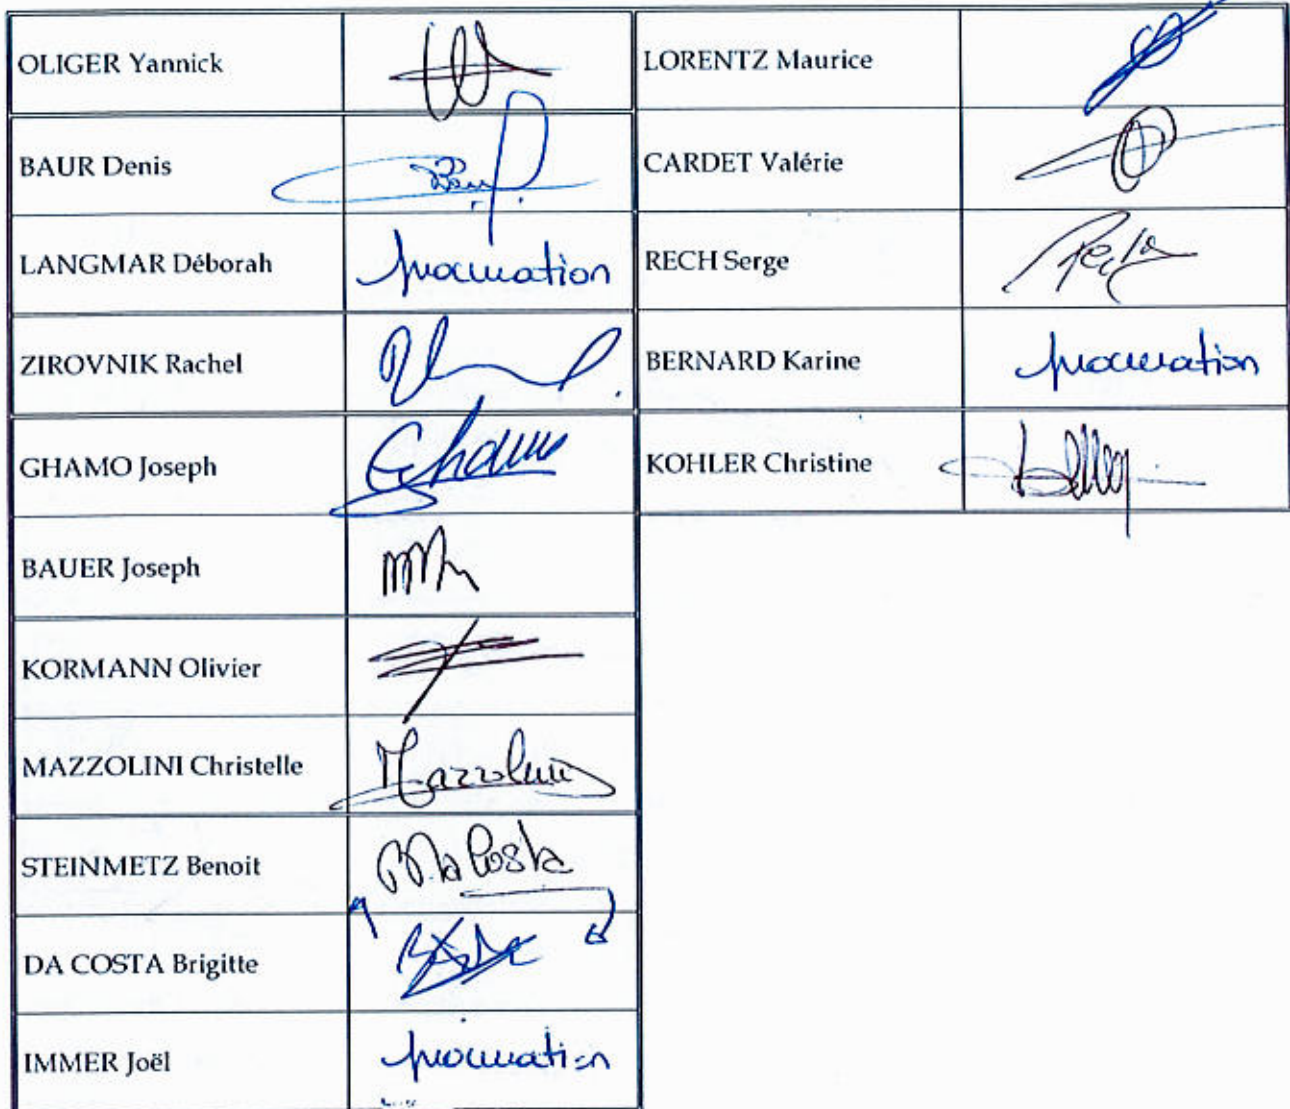 OLIGER Yannick
BAUR Denis
LANGMAR Déborah procuration
ZIROVNIK Rachel
GHAMO Joseph Ghamo
BAUER Joseph
KORMANN Olivier
MAZZOLINI Christelle Mazzolini
STEINMETZ Benoit B Da Costa
DA COSTA Brigitte
IMMER Joël procuration
LORENTZ Maurice
CARDET Valérie
RECH Serge
BERNARD Karine procuration
KOHLER Christine